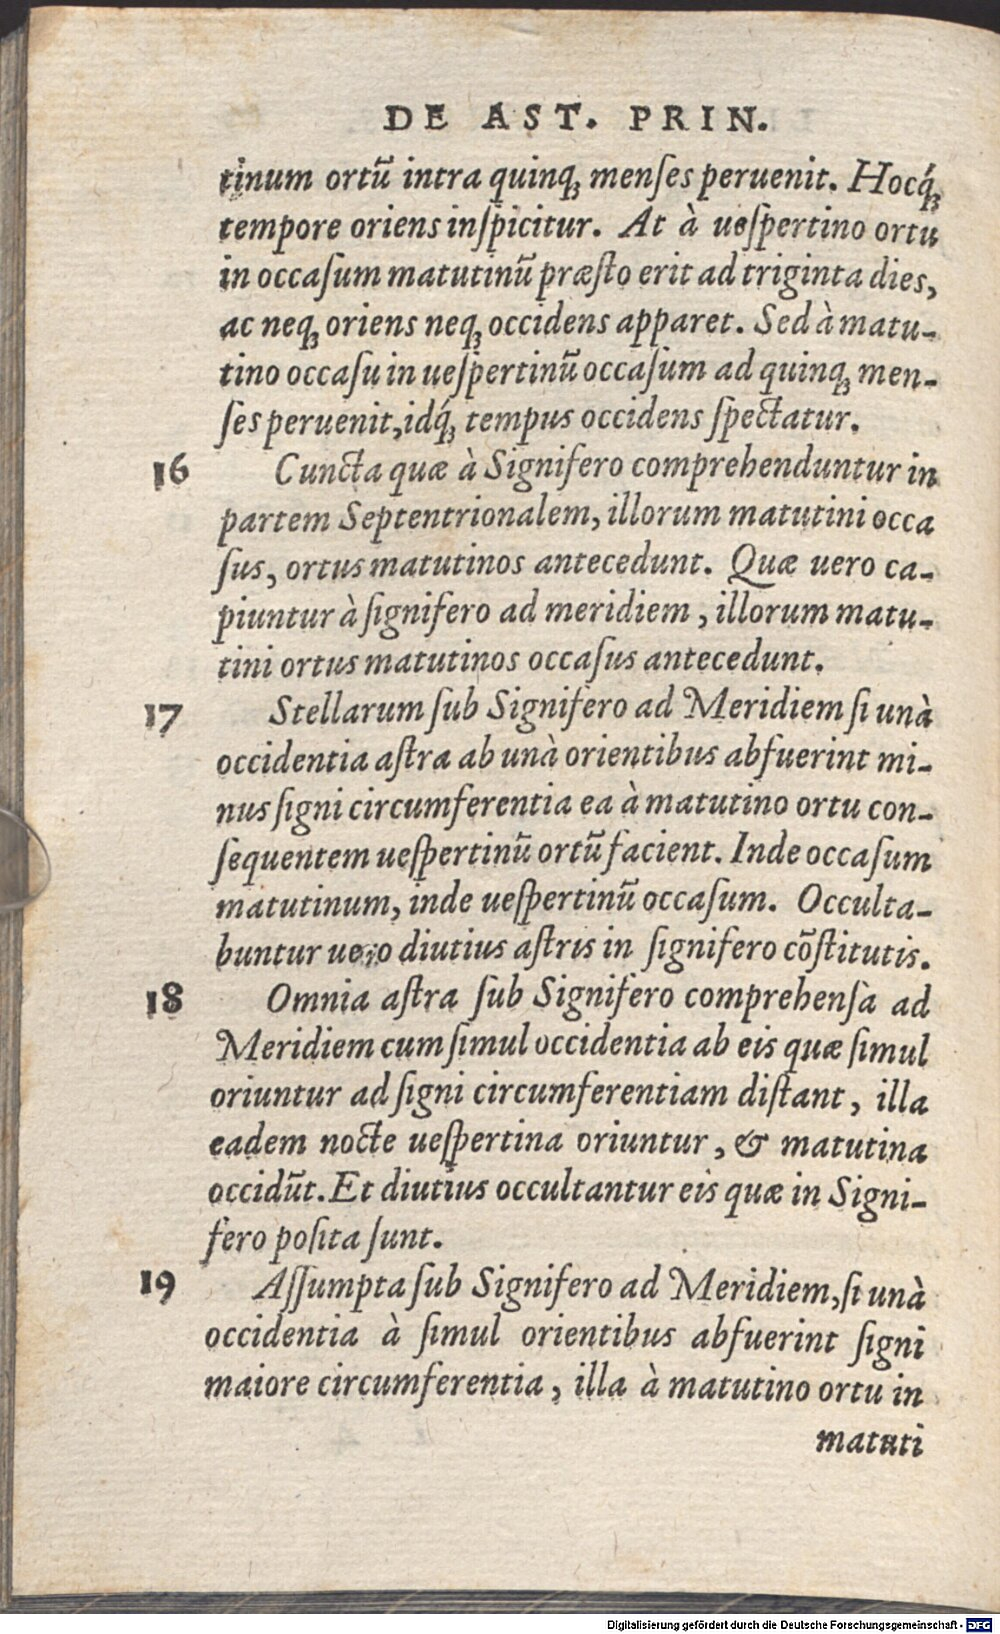 DE AST. PRIN.
tinum ortũ intra quinq; menſes peruenit. Hocq́;
tempore oriens inſpicitur. At à ueſpertino ortu
in occaſum matutinũ præſto erit ad triginta dies,
ac neq; oriens neq; occidens apparet. Sed à matu-
tino occaſu in ueſpertinũ occaſum ad quinq; men-
ſes peruenit, idq́; tempus occidens ſpectatur.
16 Cuncta quæ à Signifero comprehenduntur in
partem Septentrionalem, illorum matutini occa
ſus, ortus matutinos antecedunt. Quæ uero ca-
piuntur à ſignifero ad meridiem, illorum matu-
tini ortus matutinos occaſus antecedunt.
17 Stellarum ſub Signifero ad Meridiem ſi unà
occidentia aſtra ab unà orientibus abfuerint mi-
nus ſigni circumferentia ea à matutino ortu con-
ſequentem ueſpertinũ ortũ facient. Inde occaſum
matutinum, inde ueſpertinũ occaſum. Occulta-
buntur uero diutius aſtris in ſignifero cõſtitutis.
18 Omnia aſtra ſub Signifero comprehenſa ad
Meridiem cum ſimul occidentia ab eis quæ ſimul
oriuntur ad ſigni circumferentiam diſtant, illa
eadem nocte ueſpertina oriuntur, & matutina
occidũt. Et diutius occultantur eis quæ in Signi-
fero poſita ſunt.
19 Aſſumpta ſub Signifero ad Meridiem, ſi unà
occidentia à ſimul orientibus abfuerint ſigni
maiore circumferentia, illa à matutino ortu in
matuti
Digitalisierung gefördert durch die Deutsche Forschungsgemeinschaft - DFG